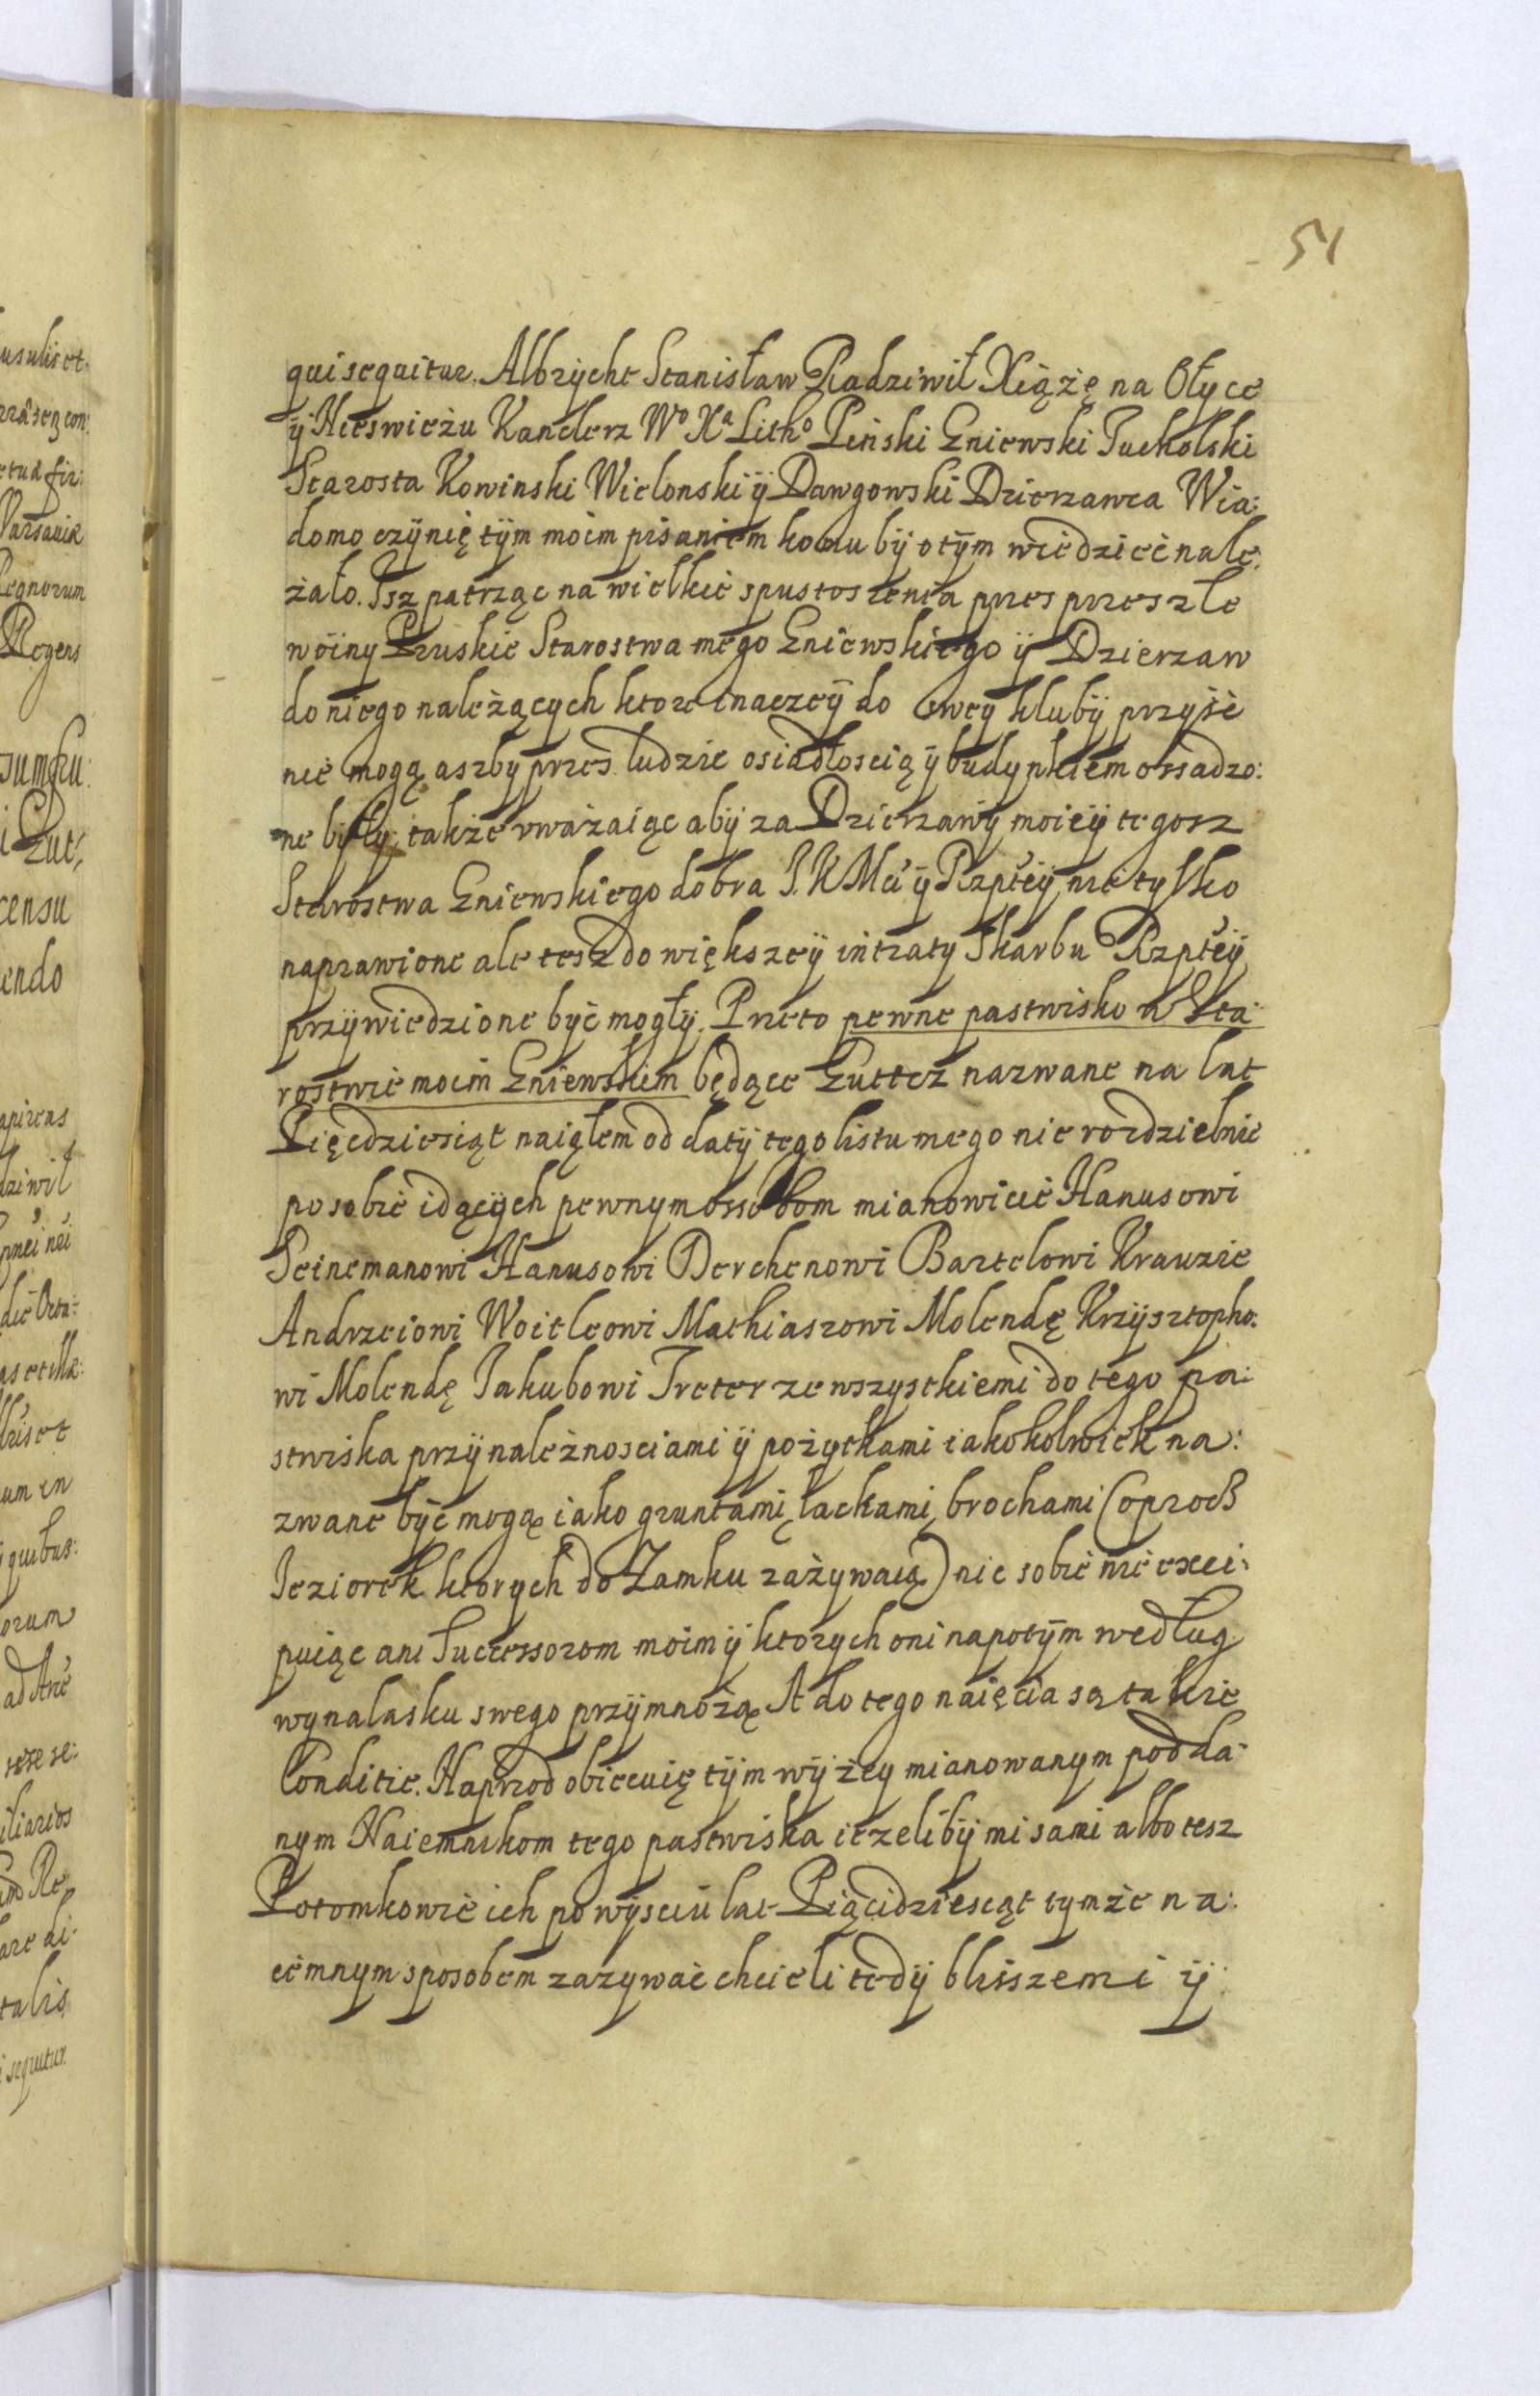 54
qui sequitur. Albrycht Stanisław Radziwił Xiążę na Ołyce
ÿ Nieswieżu Kanclerz Wº Xª Lithº Pinski Gniewski Tucholski
Starosta Kowinski Wielonski ÿ Dawgowski Dzierzawca Wia:
domo czÿnię tÿm moim pisaniem komu bÿ o tÿm wiedzieć nale:
żało. Isz patrząc na wielkie spustoszenia przes przeszłe
woiny Pruskie Starostwa mego Gniewskiego ÿ Dzierzaw
do niego należących ktore inaczeÿ do swey klubÿ przyść
nie mogą aszby przes ludzie osiadłoscią ÿ budynkiem ossadzo:
ne bÿłÿ, także uważaiąc abÿ za Dzierzawÿ moieÿ tegosz
Starostwa Gniewskiego dobra J. K Mci ÿ Rzpłeÿ nie tylko
naprawione ale tesz do większeÿ intraty Skarbu Rzpłeÿ
przÿwiedzione być mogłÿ. Przeto pewne pastwisko w Sta:
rostwie moim Gniewskim będące Guttcz nazwane na lat
Pięcdziesiąt naiąłem od datÿ tego listu mego nie rozdzielnie
po sobie idącÿch pewnym ossobom mianowicie Hanusowi
Seinemanowi Hanusowi Derchenowi Bartelowi Krauzie
Andrzeiowi Woitleowi Mathiaszowi Molendę Krzÿsztopho:
wi Molendę Jakubowi Treter ze wszystkiemi do tego pa:
stwiska przÿnależnosciami ÿ pożytkami iakokolwiek na:
zwane być mogą iako gruntami, łąckami, brochami (oprocz
Jeziorek ktorych do Zamku zażywaią) nic sobie nie exci:
puiąc ani Successorom moim ÿ ktorych oni napotÿm według
wynalasku swego przÿmnożą. A do tego naięcia są takie
Conditie. Naprzod obiecuię tÿm wÿżey mianowanym podda:
nym Naiemnikom tego pastwiska ieżelibÿ mi sami albo tesz
Potomkowie ich po wÿsciu lat Piącidziesiąt tymże na:
iemnym sposobem zazywać chcieli tedÿ bliszemi ÿ